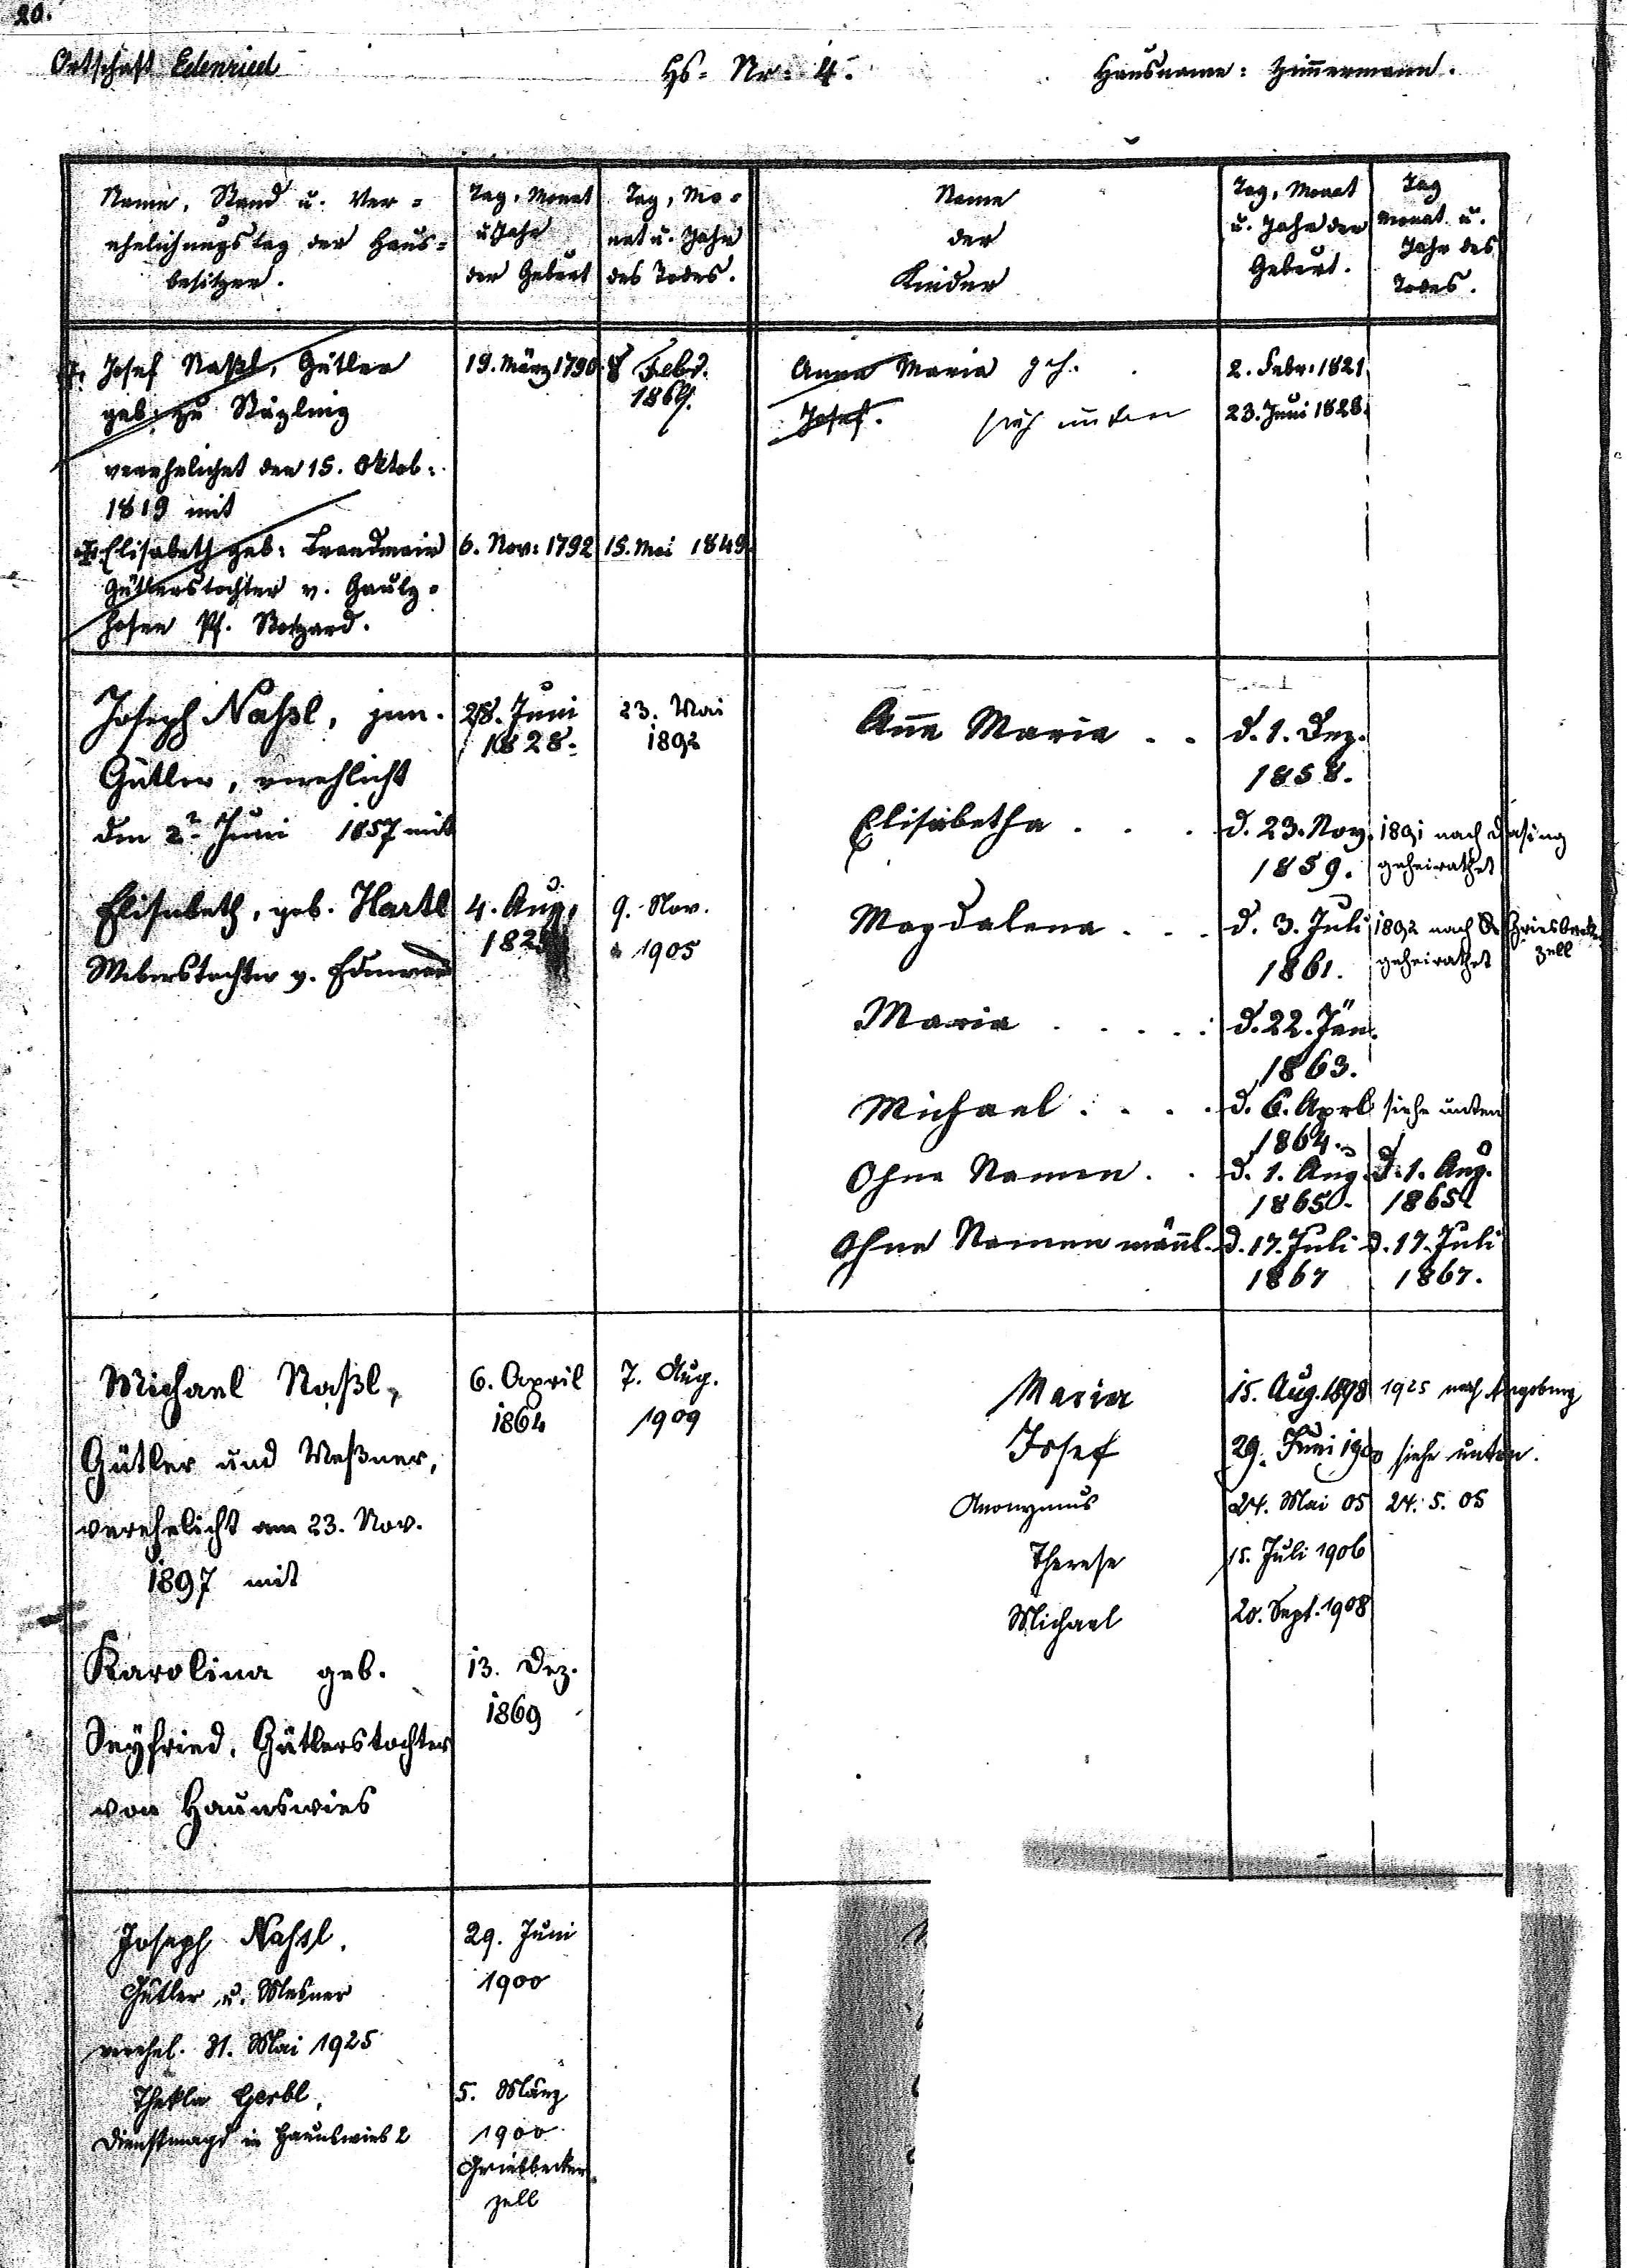 20.
Ortschaft Edenried
Hs- Nr: 4.
Hausname: Zimmermann.
Name, Stand u. Ver-
ehelichungstag der Haus-
besitzer.
Tag, Monat
u Jahr
der Geburt
Tag, Mo-
nat u. Jahr
des Todes.
Name
der
Kinder
Tag, Monat
u. Jahr der
Geburt.
Tag
Monat u.
Jahr des
Todes.
Josef Naßl, Gütler
geb. zu Stäzling
verehelichet den 15. Oktob:
1819 mit
Elisabeth geb: Brandmair
Gütlerstochter v. Gaulz-
hofen Pf. Stotzard.
19. März 1790
8 Febr.
6. Nov: 1792
15. Mai 1849.
Anna Maria
2. Febr: 1821
Josef. sieh unten
23. Juni 1828.
Joseph Naßl, jun.
Gütler, verehlicht
den 2t Juni 1857 mit
Elisabeth, geb. Hartl
Weberstochter v. Edenried
28. Juni
1828.
23. Mai
1892
4. Aug.
9. Nov.
1905
Anna Maria . .
d. 1. Dez.
1858.
Elisabetha . . .
d. 23. Nov. 1891 nach Dasing
1859. geheirathet
Magdalena . . .
d. 3. Juli 1892 nach Griesbecker
1861. geheirathet zell
Maria . . . . .
d. 22. Jän.
1863.
Michael . . . .
d. 6. Aprl siehe unten
1864.
Ohne Namen . .
d. 1. Aug. d. 1. Aug.
1865. 1865
Ohne Namen männl. d. 17. Juli d. 17. Juli
1867 1867.
Michael Naßl,
Gütler und Meßner,
verehelicht am 23. Nov.
1897 mit
Karolina geb.
Seyfried, Gütlerstochter
von Haunswies
6. April
1864
7. Aug.
1909
13. Dez.
1869
Maria 15. Aug. 1898 1925 nach Augsburg
Josef 29. Juni 1900 siehe unten.
Anonymus 24. Mai 05 24. 5. 05
Therese 15. Juli 1906
Michael 20. Sept. 1908
Joseph Naßl,
Gütler u. Mesner
verehel. 31. Mai 1925
Thekla Gerbl,
Dienstmagd in Haunswies 2
29. Juni
1900
5. März
1900
Griesbecker-
zell